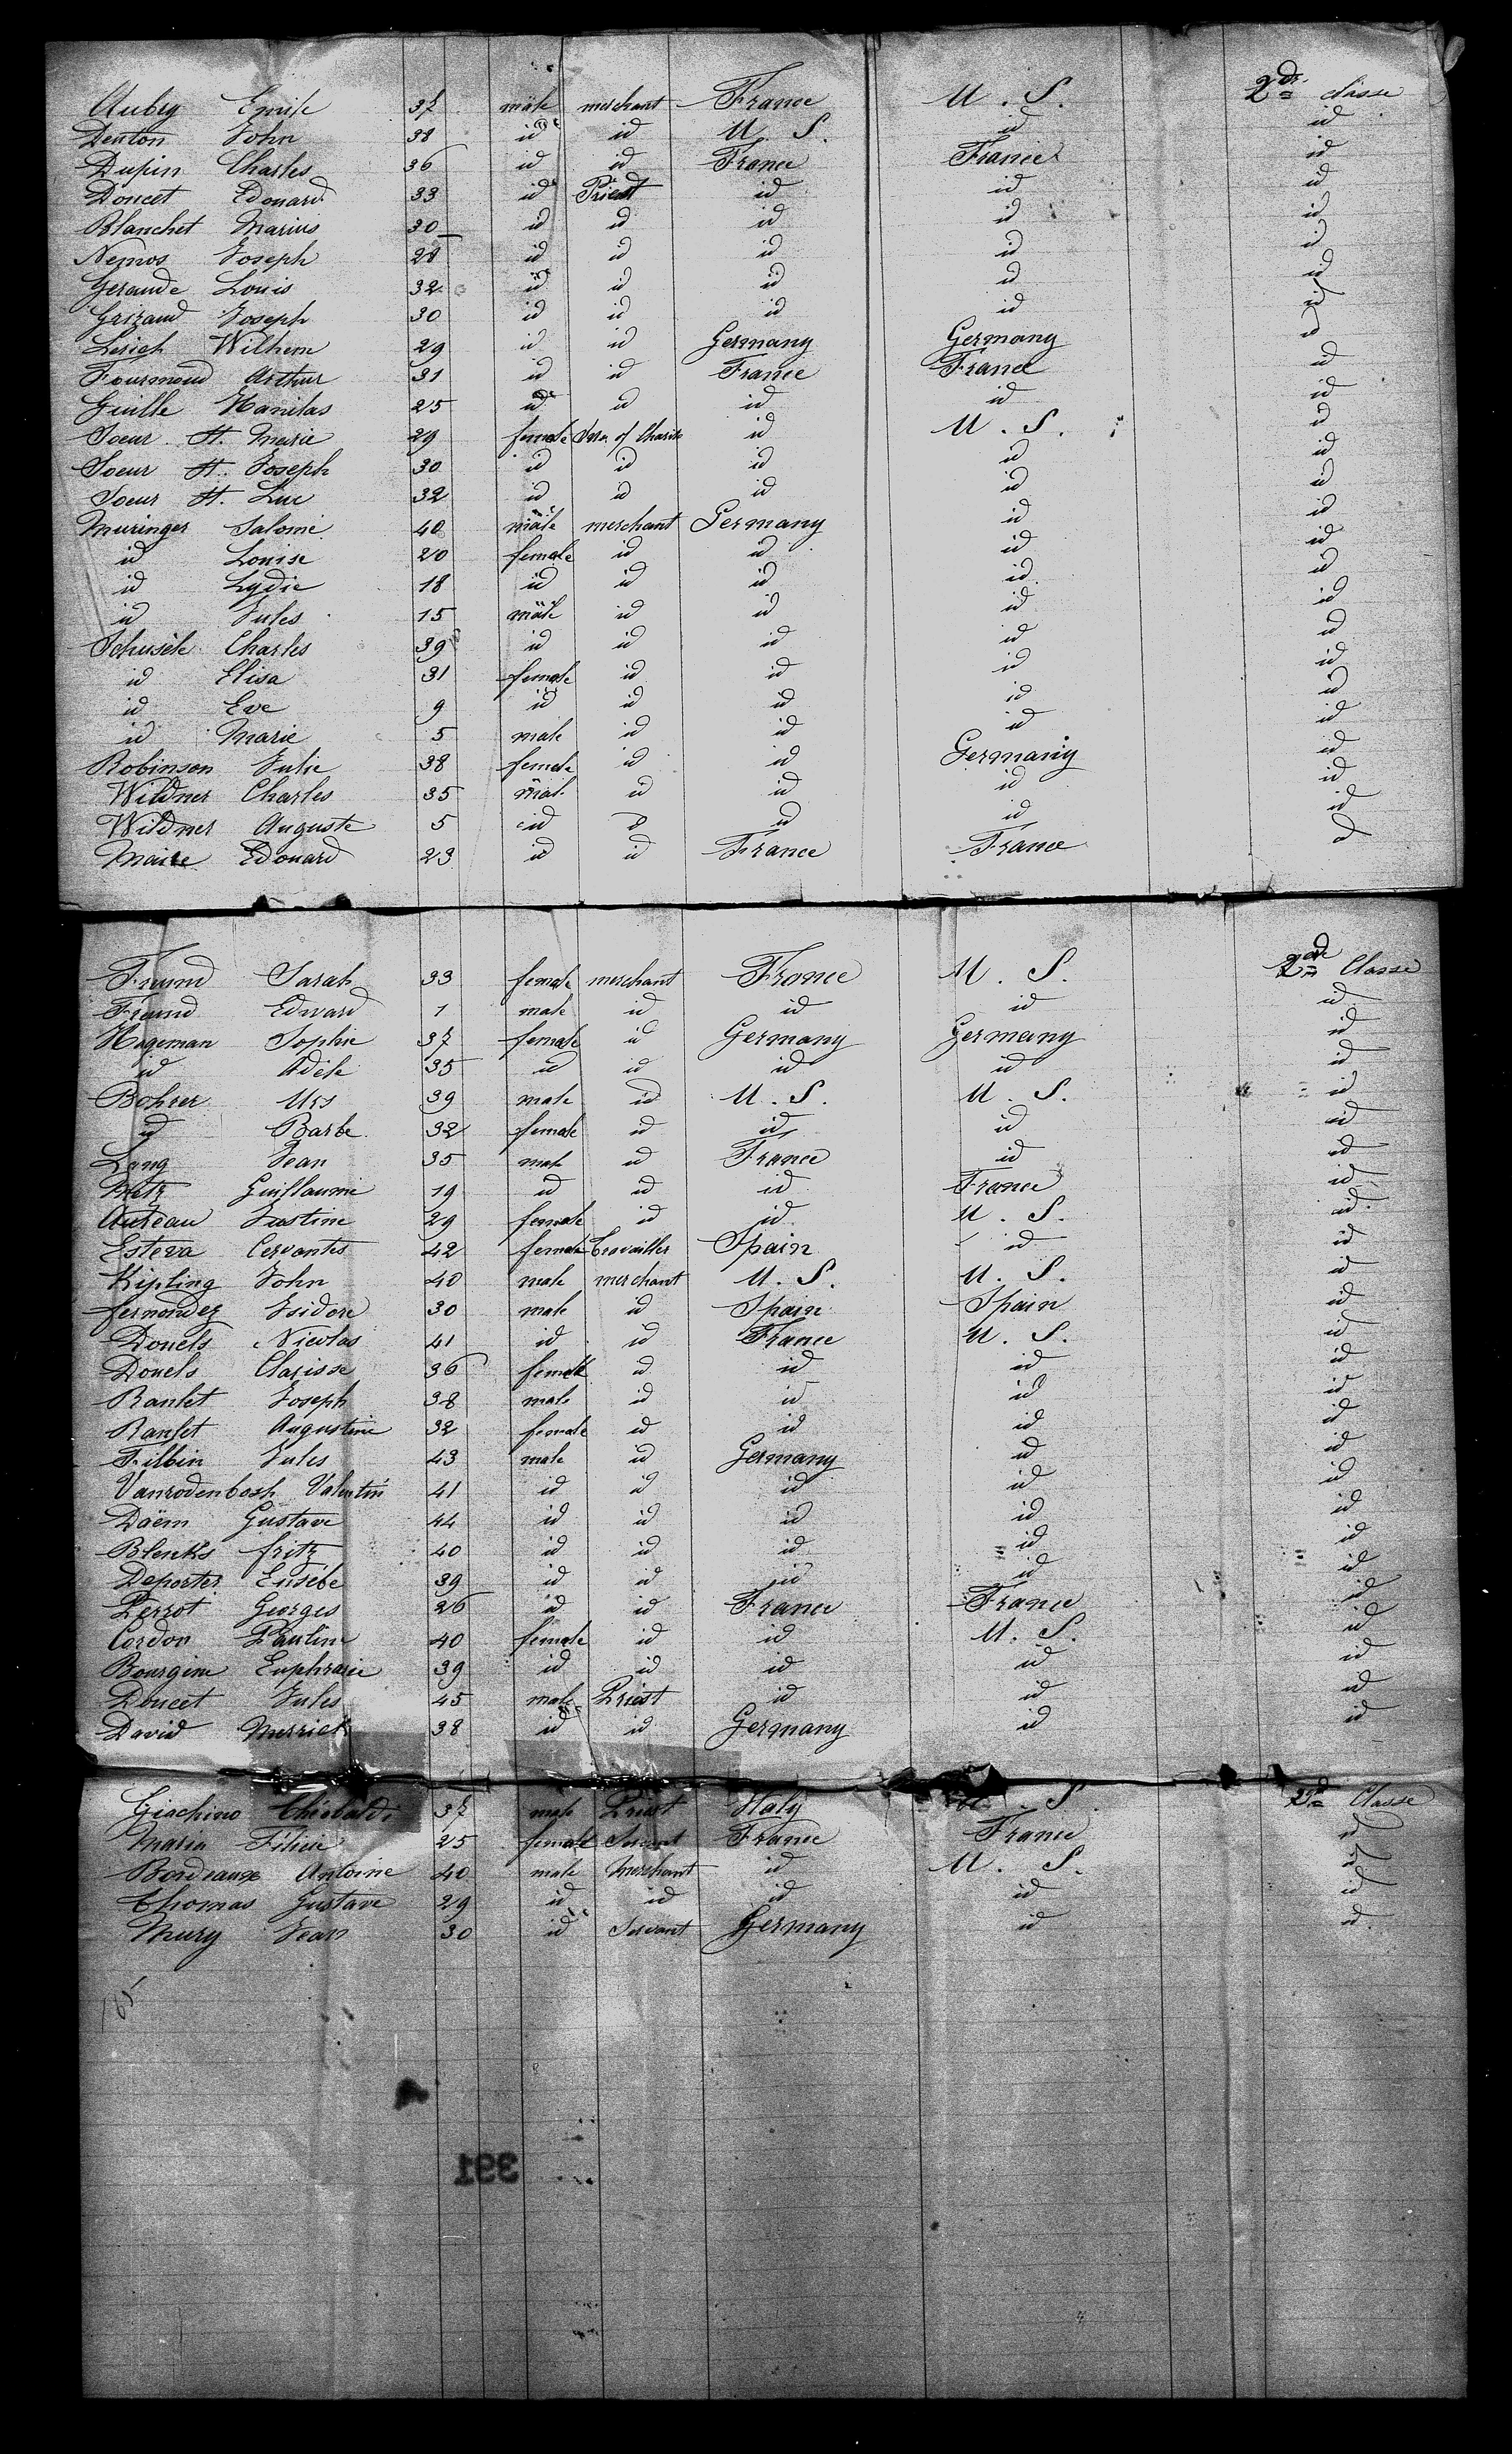 Aubry Emile 37 male merchant France U. S. 2de classe
Denton John 38 id id U. S. id id
Dupin Charles 36 id id France France id
Doucet Edouard 33 id Priest id id id
Blanchet Marius 30 id id id id id
Nemos Joseph 28 id id id id id
Geraude Louis 32 id id id id id
Grizaud Joseph 30 id id id id id
Lerich Wilhem 29 id id Germany Germany id
Fourmond Arthur 31 id id France France id
Guille Hanilas 25 id id id id id
Soeur St. Marie 29 female of Charite id U. S. id
Soeur St. Joseph 30 id id id id id
Soeur St. Luc 32 id id id id id
Muringer Salomé 40 male merchant Germany id id
id Louise 20 female id id id id
id Lydie 18 id id id id id
id Jules 15 male id id id id
Schuséle Charles 39 id id id id id
id Elisa 31 female id id id id
id Eve 9 id id id id id
id Marie 5 male id id id id
Robinson Julie 38 female id id Germany id
Wildner Charles 35 male id id id id
Wildner Auguste 5 id id id id id
Maire Edouard 23 id id France France id
Freund Sarah 33 female merchant France U. S. 2de Classe
Freund Edward 1 male id id id id
Hageman Sophie 37 female id Germany Germany id
id Adèle 35 id id id id id
Bohrer Urs 39 male id U. S. U. S. id
id Barbe 32 female id id id id
Lang Jean 35 male id France id id
Metz Guillaume 19 id id id France id
Auteau Justine 29 female id id U. S. id
Esteva Cervantes 42 female travailler Spain id id
Kipling John 40 male merchant U. S. U. S. id
fernondez Isidore 30 male id Spain Spain id
Douels Nicolas 41 id id France U. S. id
Douels Clarisse 36 female id id id id
Ranlet Joseph 38 male id id id id
Ranlet Augustine 32 female id id id id
Filbin Jules 43 male id Germany id id
Vanrodenbosh Valentin 41 id id id id id
Daëm Gustave 44 id id id id id
Blenks fritz 40 id id id id id
Deporter Eusébe 39 id id id id id
Perrot Georges 26 id id France France id
Cordon Pauline 40 female id id U. S. id
Bourgine Euphrasie 39 id id id id id
Doucet Jules 45 male Priest id id id
David Merrick 38 id id Germany id id
Giachino Thiebaldi 37 male Priest Italy U. S. 2de Classe
Maria Félicie 25 female Servant France France id
Bordeaux Antoine 40 male Merchant id U. S. id
Thomas Gustave 29 id id id id id
Mury Jean 30 id Servant Germany id id
185
391